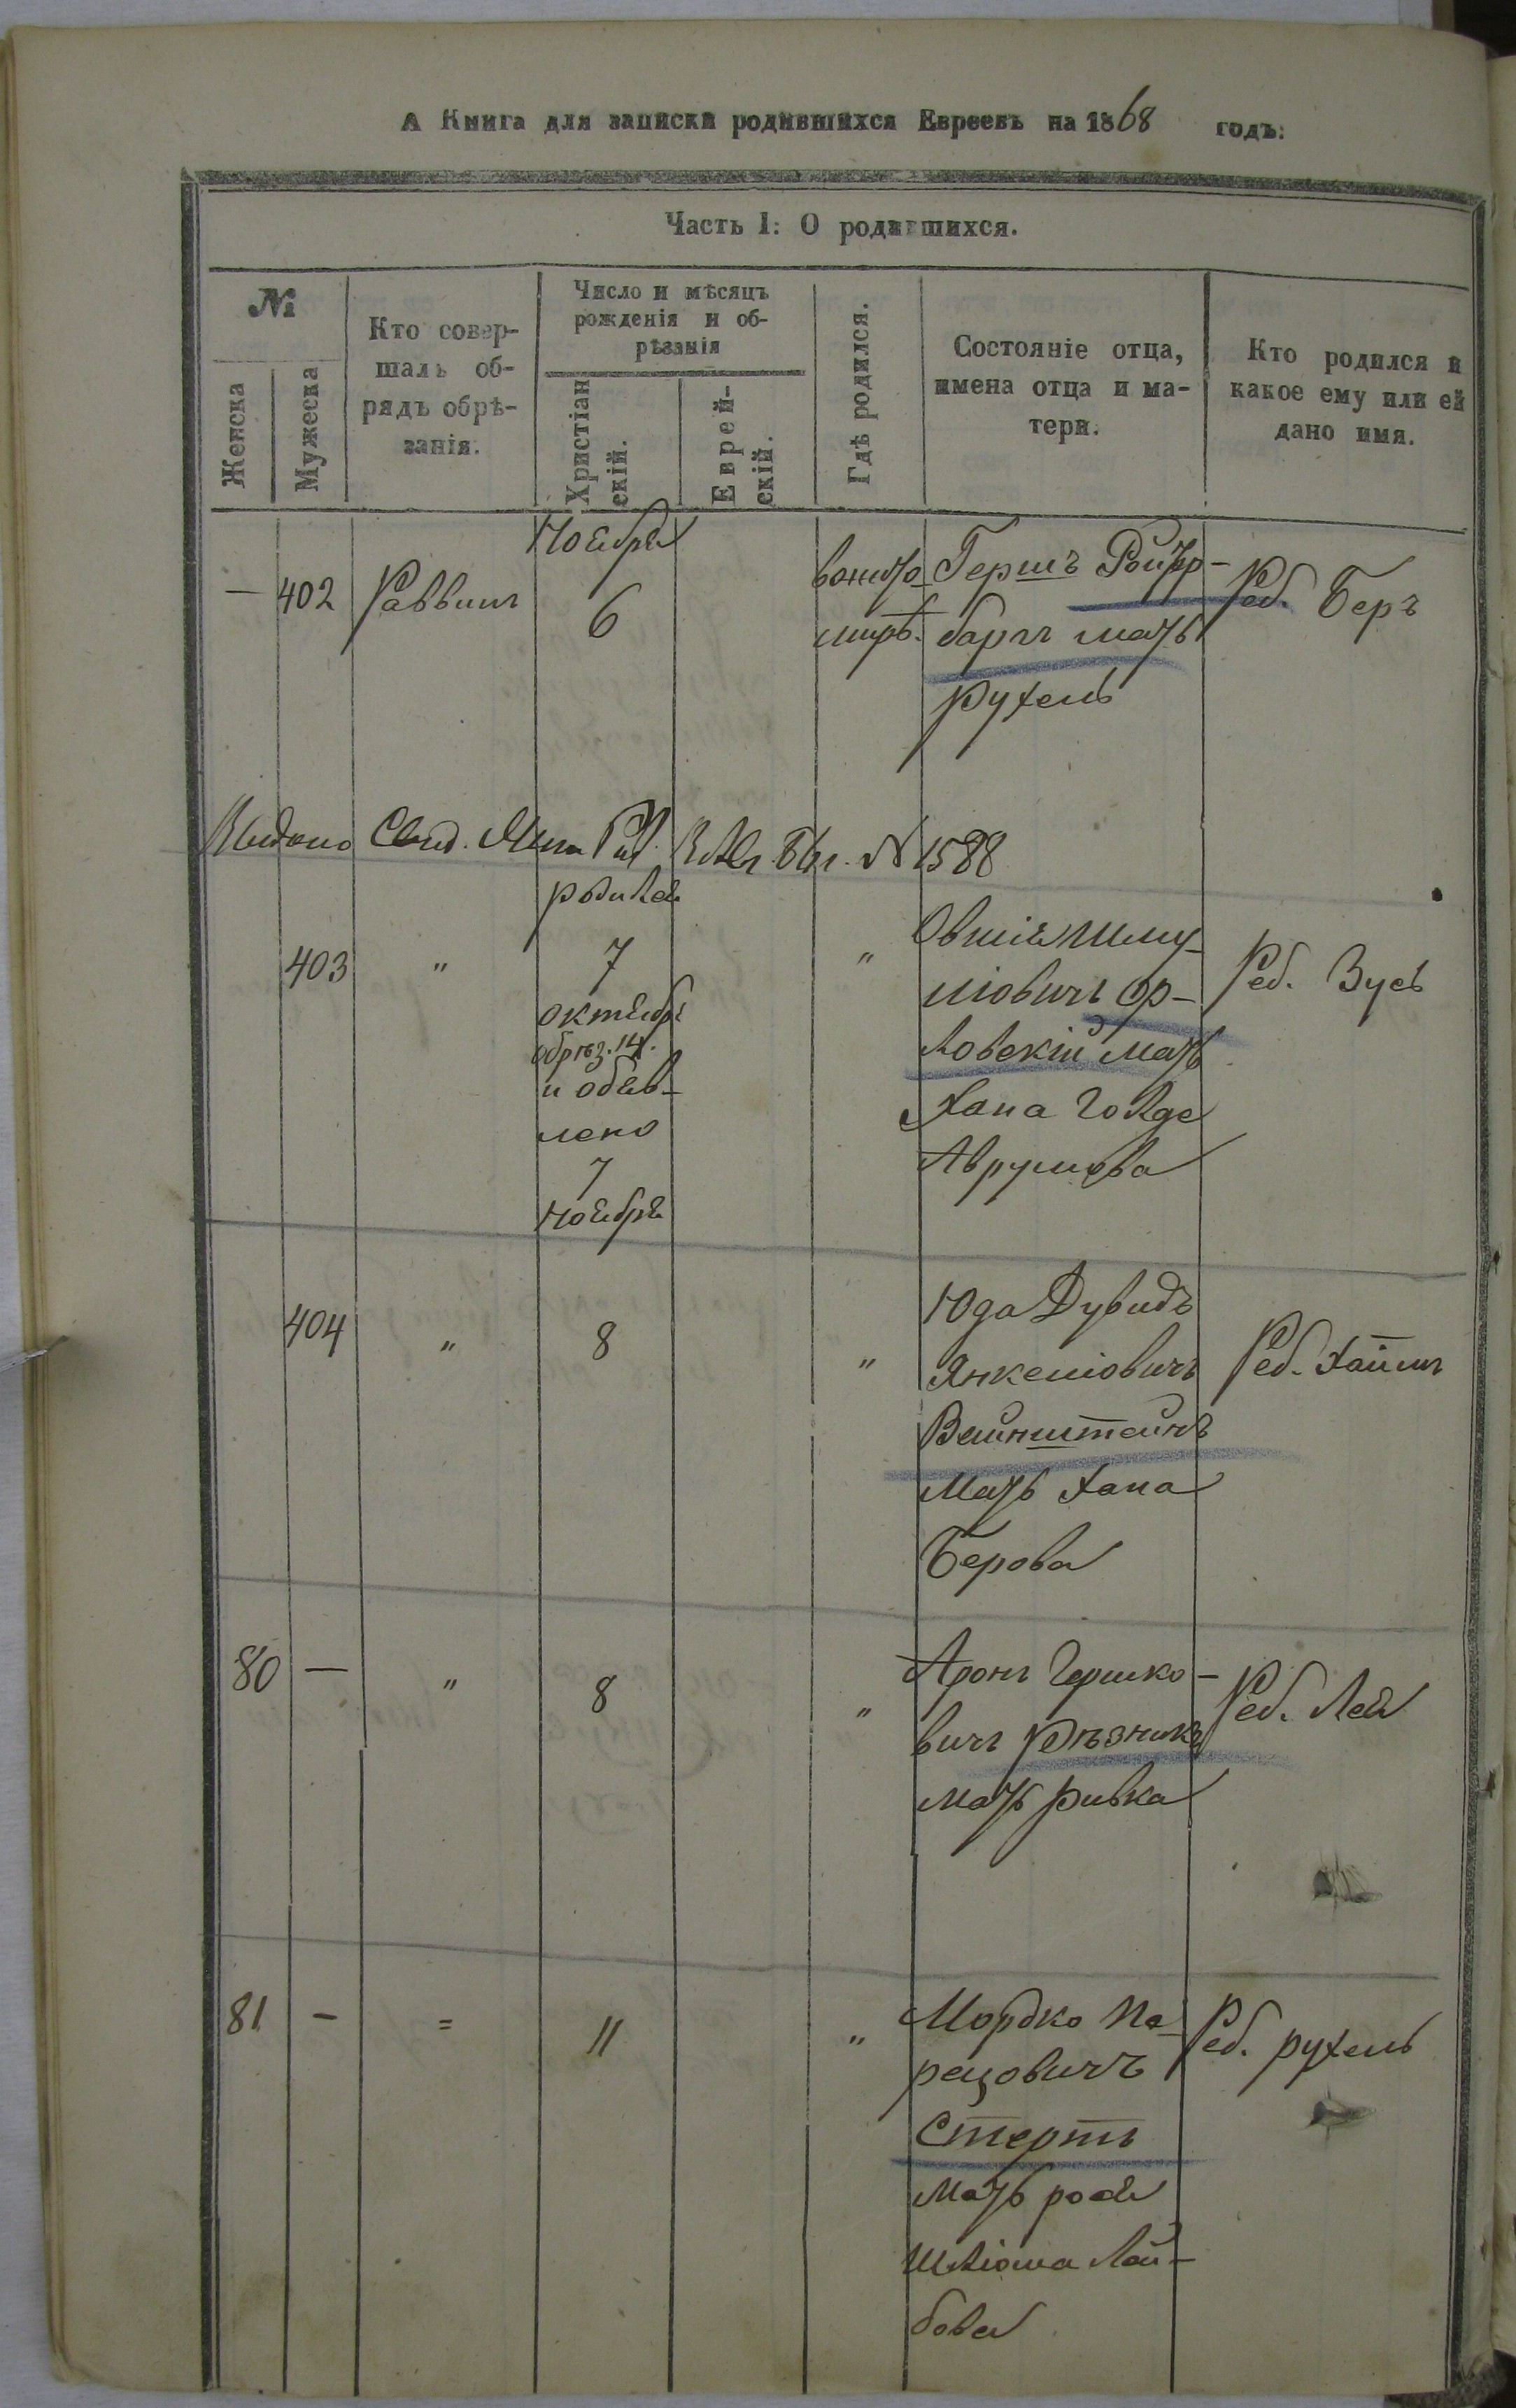 А Книга для записки родившихся Евреевъ на 1868 годъ:
Часть I: О родившихся.
№
Женска
Мужеска
Кто совер-
шалъ об-
рядъ обрѣ-
занія.
Число и мѣсяцъ
рожденія и об-
рѣзанія
Христіан
скій.
Еврей-
скій.
Гдѣ родился.
Состояніе отца,
имена отца и ма-
тери.
Кто родился и
какое ему или ей
дано имя.
— 402 Раввинъ
Ноября
6
Гершъ Ройтр-
баргъ мать
рухель
Реб. Беръ
Выдано Свид. № 1588
403 "
родился
7
октября
обрѣз. 14.
и объяв-
лено
7
Ноября
"
Овшія Шму-
ліовичъ Ор-
ловскій мать
Хана Голде
Аврумова
Реб. Зусь
404 " 8 "
Юда Дувидъ
Янкеліовичъ
Вайнштейнъ
Мать Хана
Берова
Реб. Хаимъ
80 — " 8 "
Аронъ Гершко-
вичъ Рѣзникъ
мать ривка
Реб. Лея
81 - = 11 "
Мордко Пе-
рецовичъ
Стертъ
Мать рося
Шліома Лей-
бова
Реб. рухель